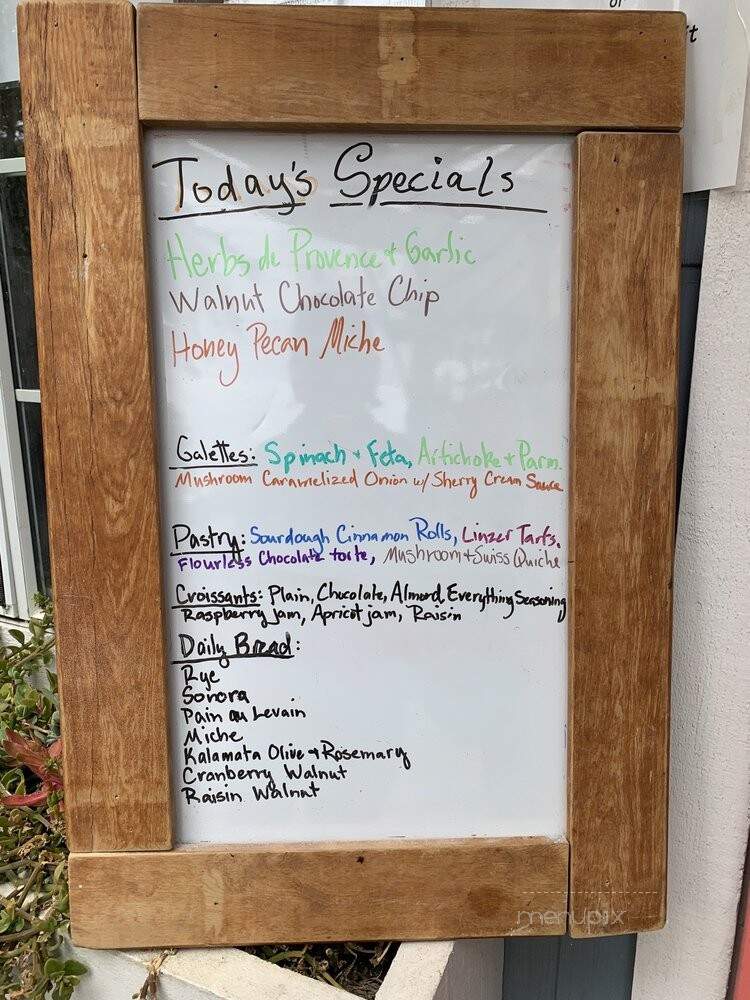 or
it
Today's Specials
Herbs de Provence + Garlic
Walnut Chocolate Chip
Honey Pecan Miche
Galettes: Spinach + Feta, Artichoke + Parm.
Mushroom Caramelized Onion w/ Sherry Cream Sauce
Pastry: Sourdough Cinnamon Rolls, Linzer Tarts.
Flourless Chocolate torte, Mushroom + Swiss Quiche
Croissants: Plain, Chocolate, Almond, Everything Seasoning
Raspberry Jam, Apricot jam, Raisin
Daily Bread:
Rye
Sonora
Pain au Levain
Miche
Kalamata Olive + Rosemary
Cranberry Walnut
Raisin Walnut
menupix